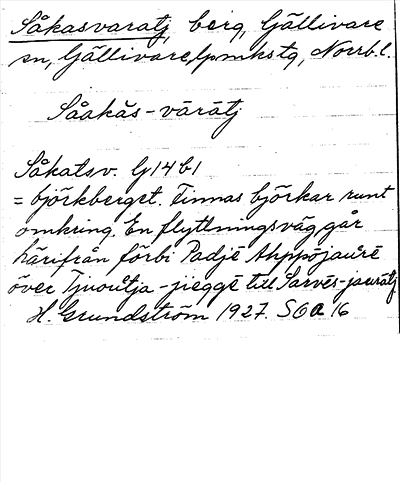 Såkasvaratj, berg, Gällivare
sn, Gällivare lpmkstg, Norrb.l.
Såakăs-vārātj
Såkatsv. G14b1
= björkberget. Finnas björkar runt
omkring. En flyttningsväg går
härifrån förbi Padjē Ahppojaurē
över Tjuoutja-jieggē till Sarvēs-jauratj
H. Grundström 1927. SOA 16